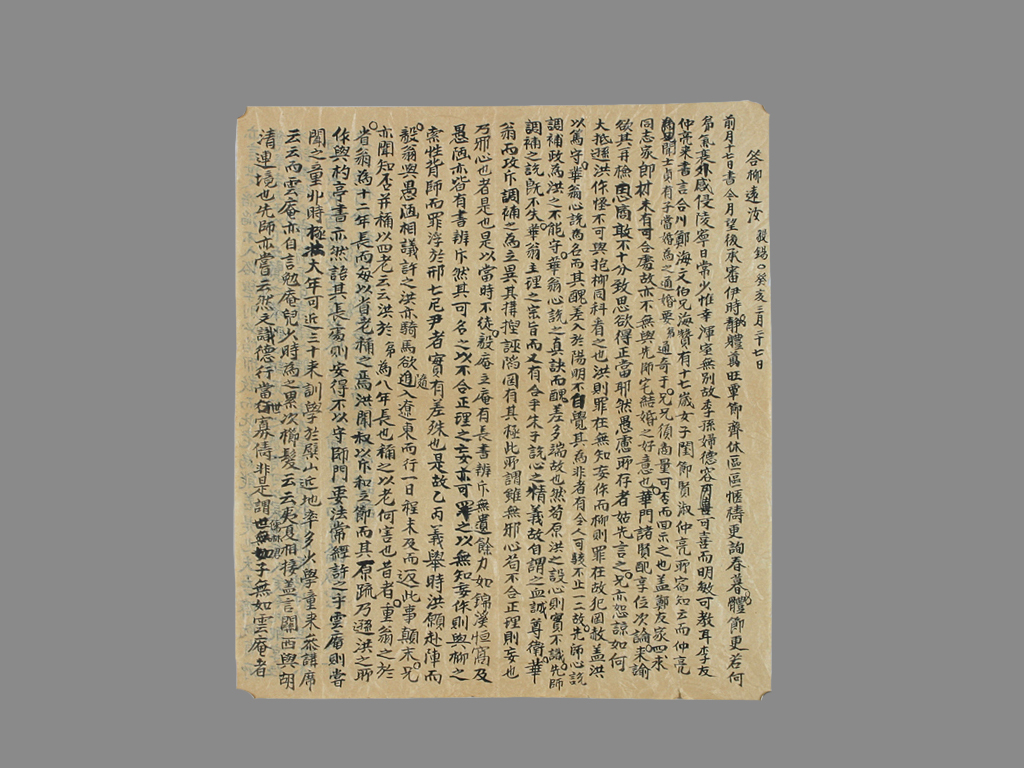 答柳遠汝 毅錫 癸亥三月二十七日
前月十七日書令月望後承審伊時靜體萬旺覃節齊休區區慨禱更詢春暮體節更若何
弟氣衰外感侵陵寧日常少惟幸渾室無別故李孫婦德容可喜而明敏可教耳李友
仲亭來書言合川鄭海文伯兄海贊有十七歲女子閨節賢淑仲亮所宿知云而仲亮
聞士貞有子當婚為之通婚要弟通奇于兄兄須商量可否而回示之也盖鄭友家四求
同志家郎材未有可合處故亦不無與先師宅結婚之好意也華門諸賢配享位次論來諭
欲其再檢因窩敢不十分致思欲得正當耶然愚慮所存者姑先言之兄亦恕諒如何
大抵遜洪作怪不可與抱柳同科看之也洪則罪在無知妄作而柳則罪在故犯因赦盖洪
以篤守華翁心說為名而其醜差入於陽明不自覺其為非者有令人可駭不止一二故先師心說
調補政為洪之不能守華翁心說之真訣而醜差多端故也然苟原洪之設心則實不識先師
調補之說旣不失華翁主理之宗旨而又有合乎朱子說心之精義故自謂之血誠尊衛華
翁而攻斥調補之為立異其搆捏誣陷固有其極此所謂雖無邪心苟不合正理則妄也
乃邪心也者是也是以當時不徒毅庵立庵有長書辨斥無遺餘力如錦溪恒窩及
愚涵亦皆有書辨斥然其可名之以不合正理之妄亦可罪之以無知妄作則與柳之
索性背師而罪浮於邢七尼尹者實有差殊也是故乙丙義擧時洪願赴陣而
毅翁與愚涵相議許之洪亦騎馬欲進入遼東而行一日程未及而返此事顚末兄
亦聞知否并稱以四老云云洪於弟為八年長也稱之以老何害也昔者重翁之於
省翁為十二年長而每以省老稱之焉洪聞叔以斥和立節而其原疏乃遜洪之所
作與杓亭書亦然語其長處則安得不以守師門要法常經許之乎雲庵則嘗
聞之重丱時極壯大年可近三十來訓學於檗山近地率多少學童來叅講席
云云而雲庵亦自言勉庵兒少時為之累次櫛髮云云夷夏相接盖言關西與胡
清連境也先師亦嘗云然之識德行當世寡儔非是謂世無如子無如雲庵者